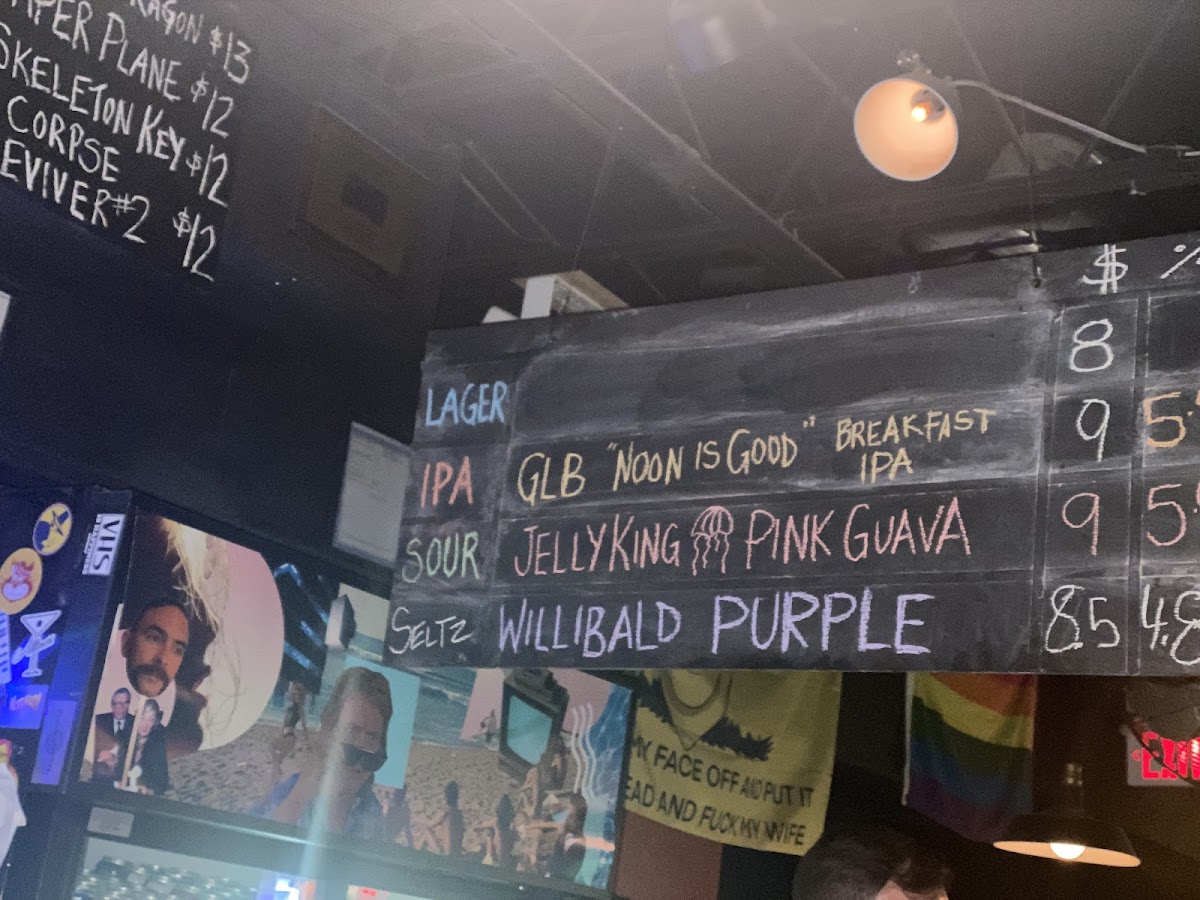 $13
PLANE $12
SKELETON KEY $12
CORPSE
#2 $12
$ %
LAGER 8
IPA GLB "NOON IS GOOD" BREAKFAST IPA 9
SOUR JELLYKING PINK GUAVA 9
SELTZ WILLIBALD PURPLE 8.5
VHS
MY FACE OFF AND PUT IT
AND FUCK MY WIFE